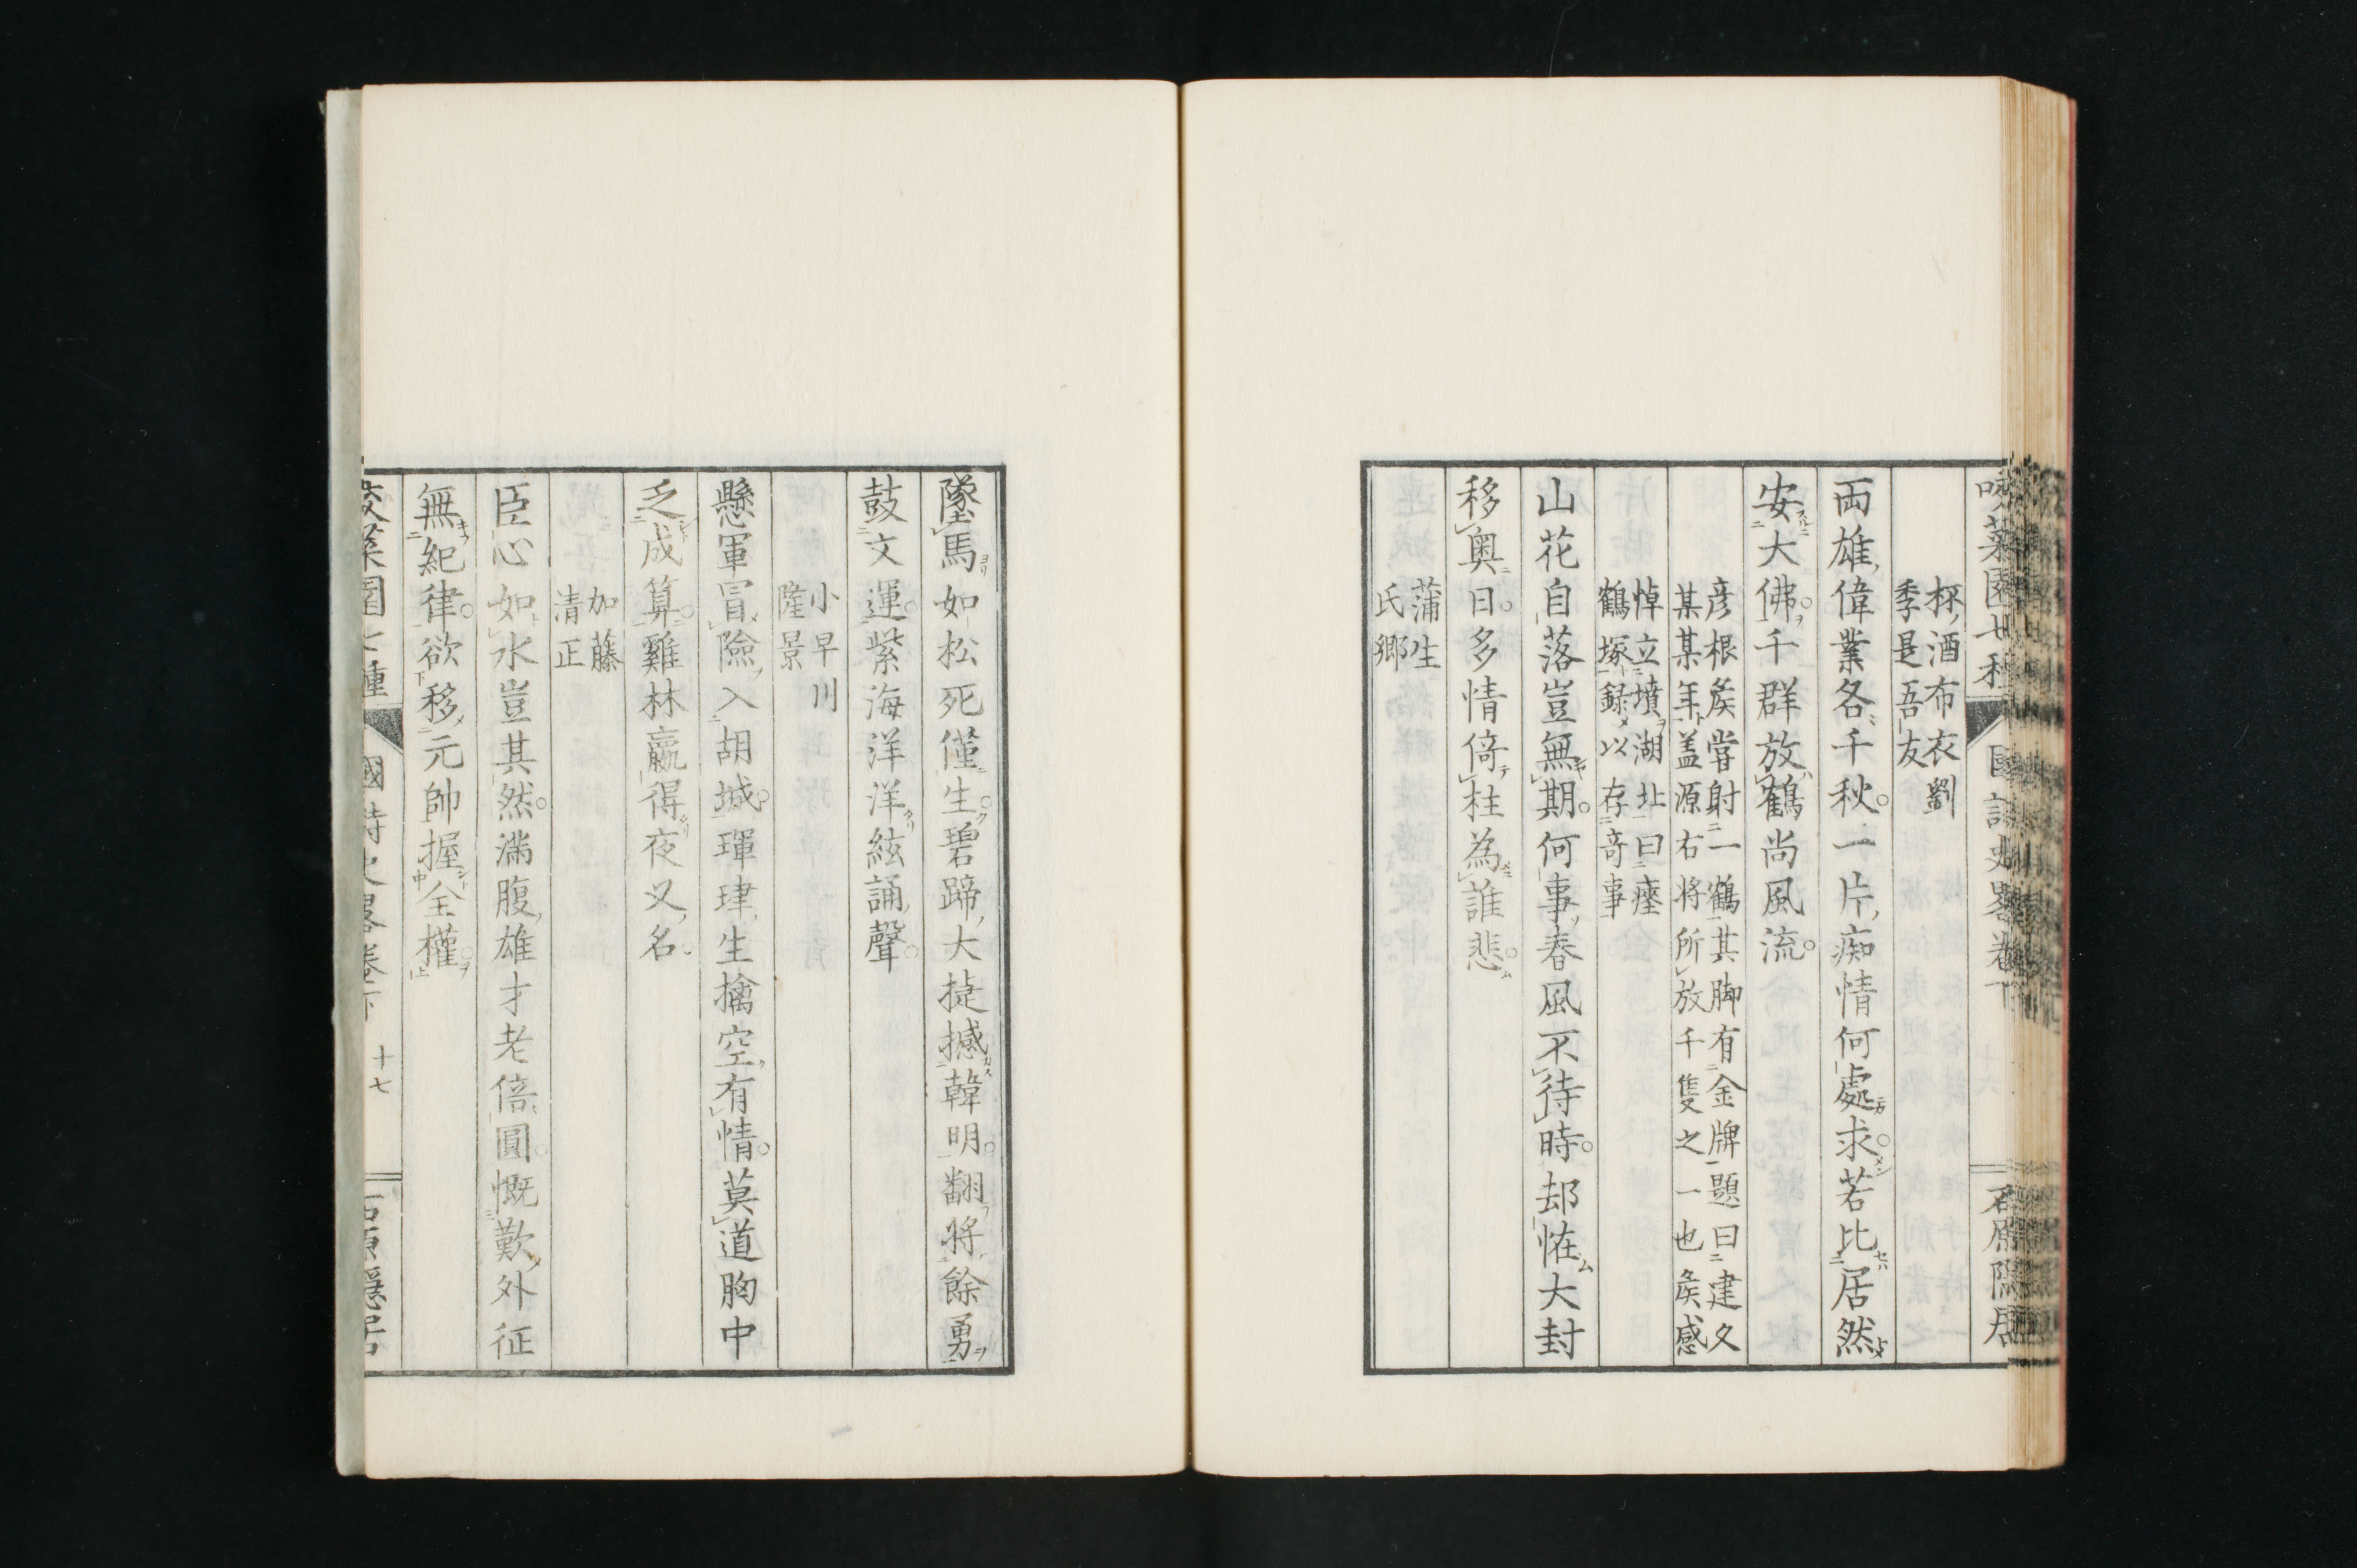 咬菜園七種 國詩史畧卷下 石原隱居
杯酒布衣劉
季是吾友
両雄偉業各千秋一片痴情何處求若比居然
安大佛千群放鶴尚風流
彦根矦嘗射一鶴其脚有金牌題曰建久
某某年蓋源右将所放千隻之一也矦感
悼立墳湖北曰瘞
鶴塚録以存竒事
山花自落豈無期何事春風不待時却恠大封
移奥日多情倚柱為誰悲
蒲生
氏鄉
墜馬如松死僅生碧蹄大捷撼韓明翻将餘勇
鼓文運紫海洋洋絃誦聲
小早川
隆景
懸軍冒險入胡城琿㻖生擒空有情莫道胸中
乏成算雞林贏得夜叉名
加藤
清正
臣心如水豈其然滿腹雄才老倍圓慨歎外征
無紀律欲移元帥握全權
咬菜園七種 國詩史畧卷下 十七 石原隱居